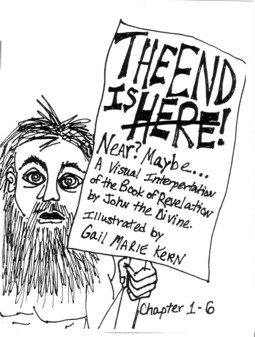 THE END
IS HERE!
Near? Maybe...
A Visual Interpertation
of the Book of Revelation
by John the Divine.
Illustrated by
Gail MARIE KERN
Chapter 1-6